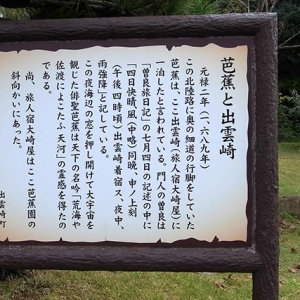 芭蕉と出雲崎
元禄二年（一、六八九年）
この北陸路に奥の細道の行脚をしていた
芭蕉は、ここ出雲崎（旅人宿大崎屋）に
一泊したと言われている。門人の曽良は
「曽良旅日記」の七月四日の記述の中に
「四日快晴、風（中略）同晩、申ノ上刻
（午後四時頃）出雲崎着宿ス、夜中、
雨強降」と記している。
この夜海辺の窓を押し開けて大宇宙を
観じた俳聖芭蕉は天下の名吟「荒海や
佐渡によこたふ天河」の霊感を得たの
である。
尚、旅人宿大崎屋はここ芭蕉園の
斜向かいにあった。
出雲崎町